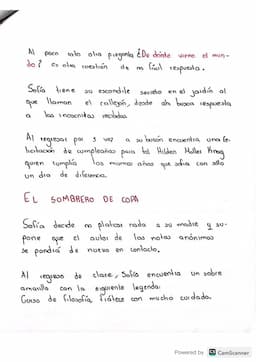 Al poco rato otra pregunta ¿De dónde viene el mun-
do? Es otra cuestión de no fácil respuesta.
Sofía tiene su escondite secreto en el jardín al
que llaman el callejón, desde ahí busca respuesta
a las incógnitas recibidas.
Al regresar por 3 vez a su buzón encuentra una fe-
licitación de cumpleaños para tal Hilden Møller Knag
quien cumplía los mismos años que Sofía con sólo
un día de diferencia.
EL SOMBRERO DE COPA
Sofía decide no platicar nada a su madre y su-
pone que el autor de las notas anónimas
se pondrá de nuevo en contacto.
Al regreso de clase, Sofía encuentra un sobre
amarillo con la siguiente leyenda:
Curso de filosofía. Trátese con mucho cuidado.
Powered by CS CamScanner